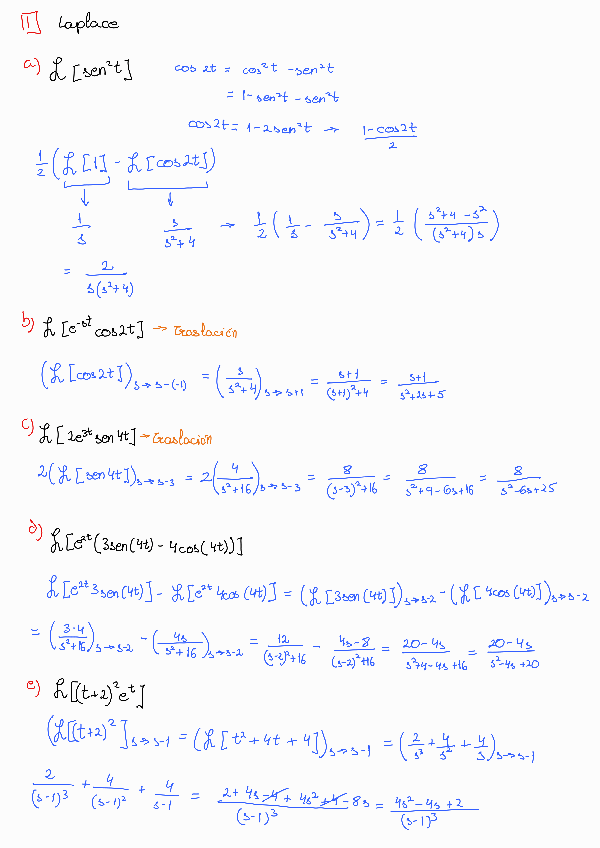 11 Laplace
a) ℒ[sen²t] cos 2t = cos²t - sen²t
= 1 - sen²t - sen²t
cos2t = 1 - 2sen²t → (1-cos2t)/2
1/2 (ℒ[1] - ℒ[cos2t])
↓ ↓
1/s s/(s²+4) → 1/2 (1/s - s/(s²+4)) = 1/2 ((s²+4-s²)/((s²+4)s))
= 2/(s(s²+4))
b) ℒ[e^(-t) cos2t] → traslación
(ℒ[cos2t])_(s→s-(-1)) = (s/(s²+4))_(s→s+1) = (s+1)/((s+1)²+4) = (s+1)/(s²+2s+5)
c) ℒ[2e^(3t) sen4t] → traslación
2(ℒ[sen4t])_(s→s-3) = 2(4/(s²+16))_(s→s-3) = 8/((s-3)²+16) = 8/(s²+9-6s+16) = 8/(s²-6s+25)
d) ℒ[e^(2t)(3sen(4t) - 4cos(4t))]
ℒ[e^(2t) 3sen(4t)] - ℒ[e^(2t) 4cos(4t)] = (ℒ[3sen(4t)])_(s→s-2) - (ℒ[4cos(4t)])_(s→s-2)
= (3·4/(s²+16))_(s→s-2) - (4s/(s²+16))_(s→s-2) = 12/((s-2)²+16) - (4s-8)/((s-2)²+16) = (20-4s)/(s²+4-4s+16) = (20-4s)/(s²-4s+20)
e) ℒ[(t+2)²e^t]
(ℒ[(t+2)²]_(s→s-1) = (ℒ[t²+4t+4])_(s→s-1) = (2/s³ + 4/s² + 4/s)_(s→s-1)
2/(s-1)³ + 4/(s-1)² + 4/(s-1) = (2+4s-4+4s²+4-8s)/(s-1)³ = (4s²-4s+2)/(s-1)³